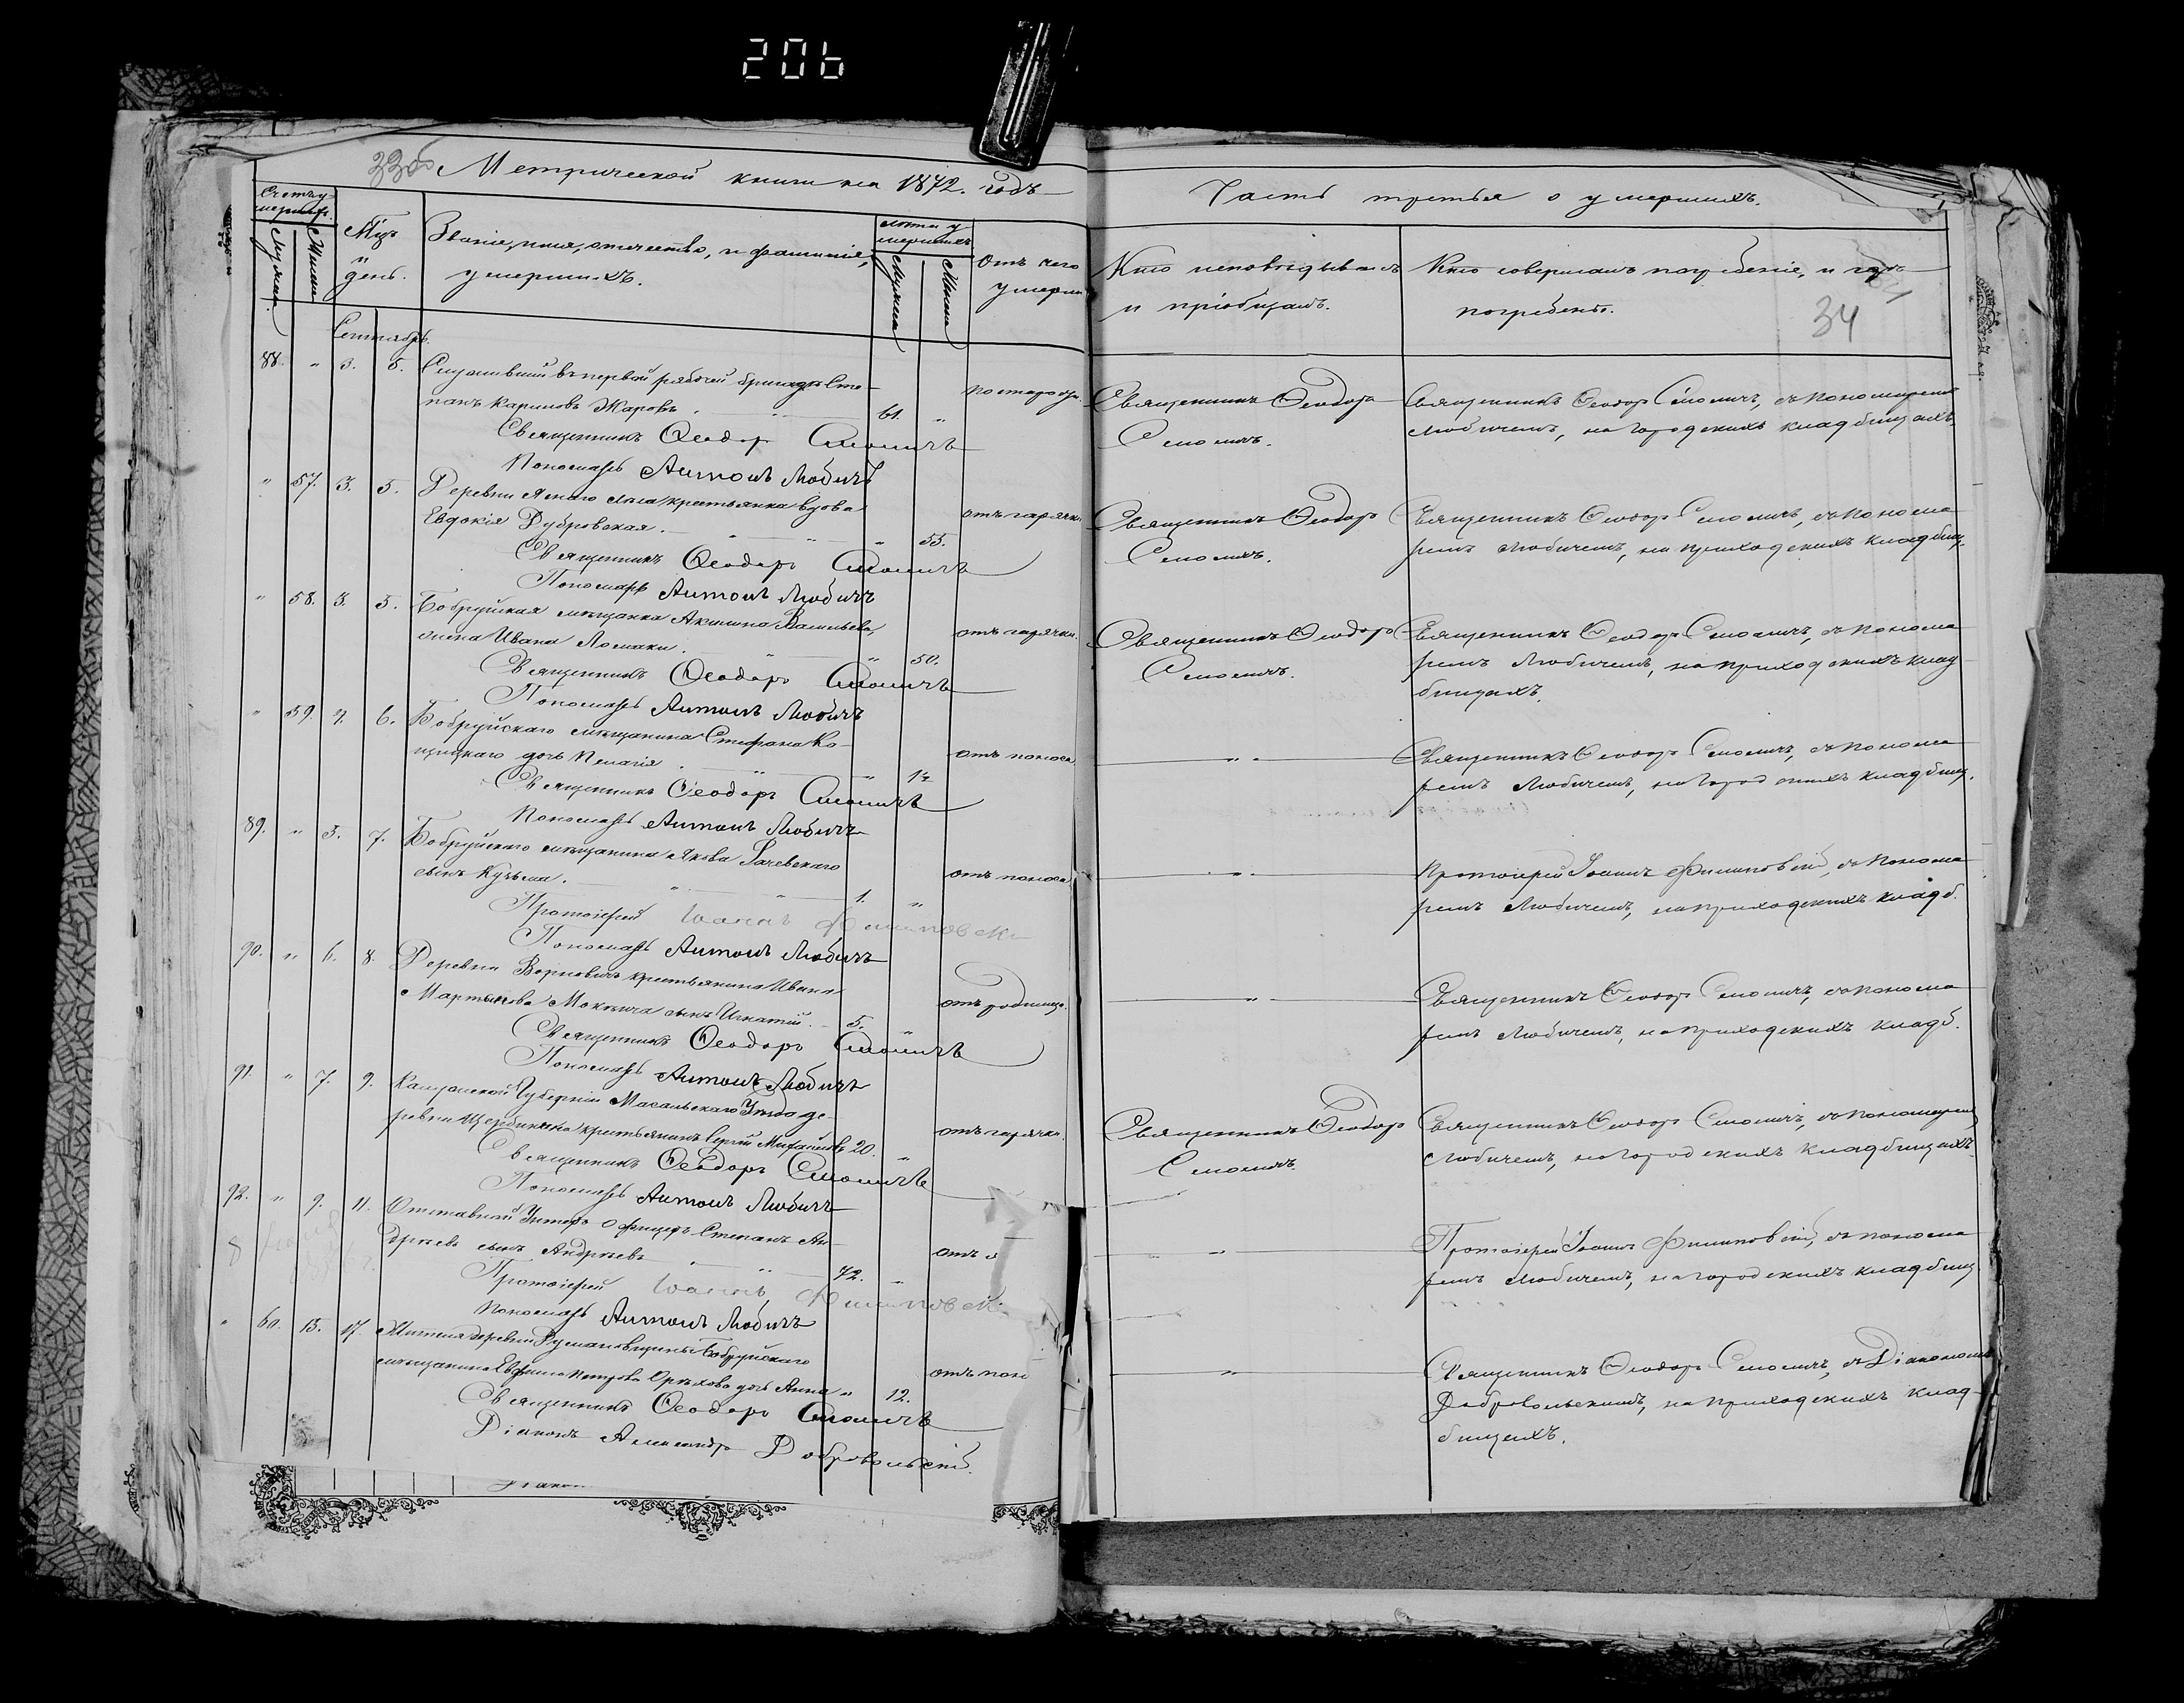 206
330б Метрической книги на 1872. годъ
Часть третья о умершихъ.
34
Счетъ у-
мершихъ.
Мужеска.
Женска
Мцъ
и
день.
Званіе, имя, отчество, и фамилія,
умершихъ.
Лѣта у
мершихъ
Мужеска
Женска
Отъ чего
умерли
Кто исповѣдывалъ
и пріобщалъ.
Кто совершалъ погребеніе, и гдѣ
погребены.
Сентябрь.
88. " 3. 5. Служившій въ первой рабочей бригадѣ Сте-
панъ Карповъ Жаровъ. 61. " по старости.
Священникъ Ѳеодоръ Смоличъ
Пономарь Антонъ Любичъ
Священникъ Ѳеодоръ
Смоличъ.
Священникъ Ѳеодоръ Смоличъ, съ Пономаремъ
Любичемъ, на Городскихъ кладбищахъ.
" 57. 3. 5. Деревни Яснаго Лѣса крестьянка вдова
Евдокія Дубровская. " 55. отъ горячки
Священникъ Ѳеодоръ Смоличъ
Пономарь Антонъ Любичъ
Священникъ Ѳеодоръ
Смоличъ.
Священникъ Ѳеодоръ Смоличъ, съ Понома
ремъ Любичемъ, на приходскихъ кладбищ.
" 58. 3. 5. Бобруйская мѣщанка Акилина Васильева,
жена Ивана Ломаки. " 50. отъ горячки.
Священникъ Ѳеодоръ Смоличъ
Пономарь Антонъ Любичъ
Священникъ Ѳеодоръ
Смоличъ.
Священникъ Ѳеодоръ Смоличъ, съ Понома
ремъ Любичемъ, на приходскихъ клад
бищахъ.
" 59. 4. 6. Бобруйскаго мѣщанина Стефана Ко-
щицкаго дочь Пелагія " 14 отъ поноса.
Священникъ Ѳеодоръ Смоличъ
Пономарь Антонъ Любичъ
" Священникъ Ѳеодоръ Смоличъ, съ Понома
ремъ Любичемъ, на Городскихъ кладбищ.
89. " 5. 7. Бобруйскаго мѣщанина Якова Рачевскаго
сынъ Кузьма. 1. " отъ поноса
Протоіерей Іоаннъ Филиповскі
Пономарь Антонъ Любичъ
" Протоіерей Іоаннъ Филиповскій, съ Понома
ремъ Любичемъ, на приходскихъ кладб.
90. " 6. 8. Деревни Ворновичъ крестьянина Ивана
Мартынова сынъ Игнатій. 5. " отъ родимца.
Священникъ Ѳеодоръ Смоличъ
Пономарь Антонъ Любичъ
" Священникъ Ѳеодоръ Смоличъ, съ Понома
ремъ Любичемъ, на приходскихъ кладб.
91. " 7. 9. Калужской Губерніи Масальскаго Уѣзда де-
ревни крестьянинъ Сергѣй Михайловъ 20. " отъ горячки.
Священникъ Ѳеодоръ Смоличъ
Пономарь Антонъ Любичъ
Священникъ Ѳеодоръ
Смоличъ.
Священникъ Ѳеодоръ Смоличъ, съ Пономаремъ
Любичемъ, на Городскихъ кладбищахъ.
92. " 9. 11. Отставной Унтеръ Офицеръ Степанъ Ан-
дреевъ сынъ Андреевъ 42. " отъ
Протоіерей Іоаннъ Филиповск
Пономарь Антонъ Любичъ
" Протоіерей Іоаннъ Филиповскій, съ Понома
ремъ Любичемъ, на городскихъ кладбищ.
" 60. 15. 17. Жителя деревни Думановщины Бобруйскаго
мѣщанина Евфима Петрова Орѣхова дочь Анна " 12. отъ поно
Священникъ Ѳеодоръ Смоличъ
Діаконъ Александръ Добровольскій.
" Священникъ Ѳеодоръ Смоличъ, съ Діакономъ
Добровольскимъ, на приходскихъ клад-
бищахъ.